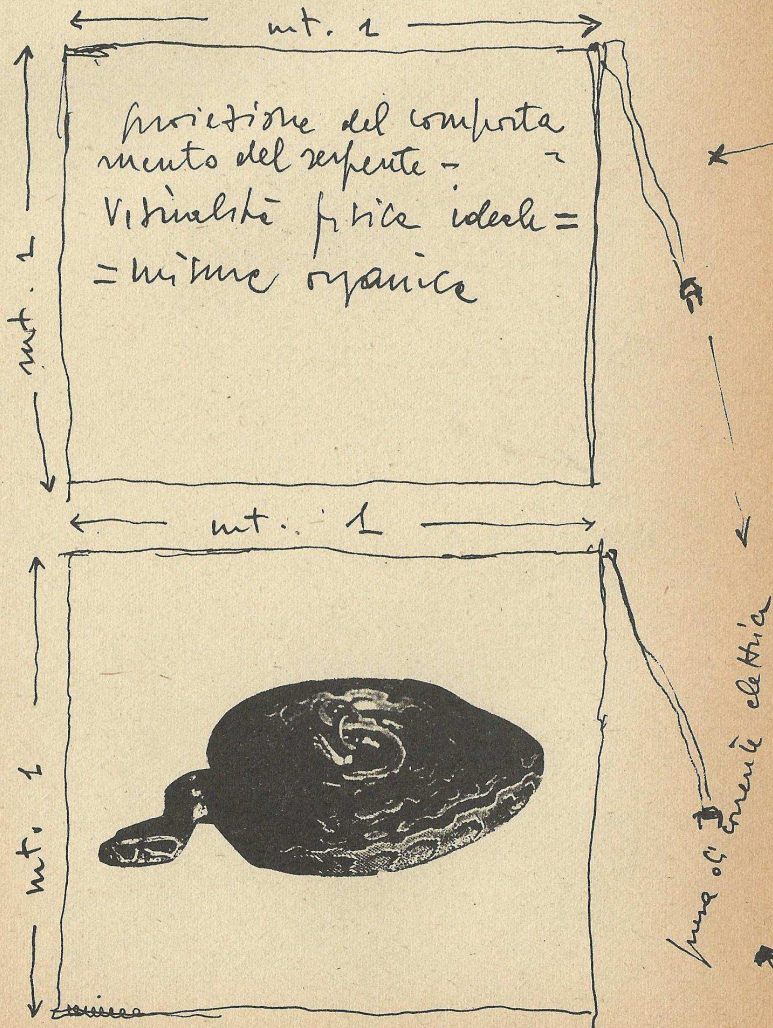 mt. 1
mt. 1
proiezione del comporta
mento del serpente -
Visualità fisica ideale =
= misura organica
mt. 1
mt. 1
presa di corrente elettrica